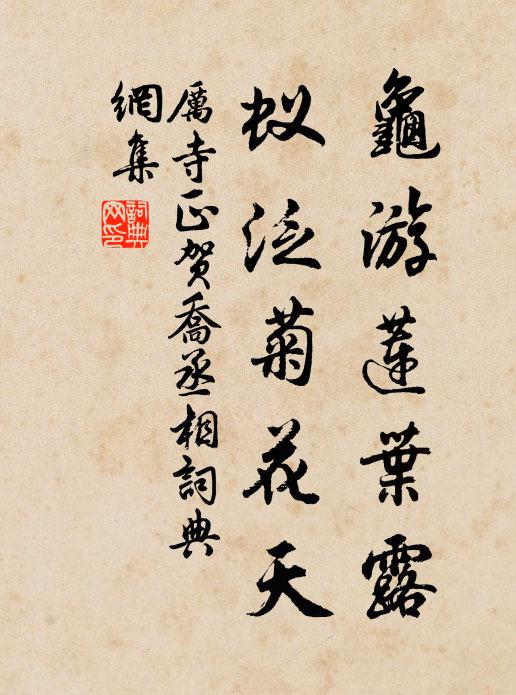 龜游蓮葉露
蚁泛菊花天
厲寺正贺喬丞相詞典
網集
詞典
网印